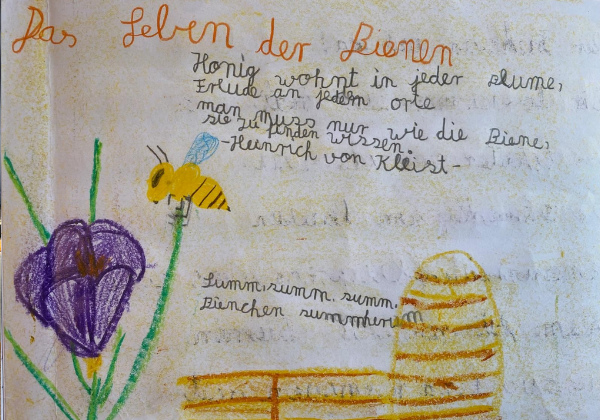 Das Leben der Bienen
Honig wohnt in jeder Blume,
Erlude an jedem orte
man muss nur wie die Biene,
sie zu finden wissen.
-Heinrich von Kleist-
Summ. summ. summ.
Bienchen summherum